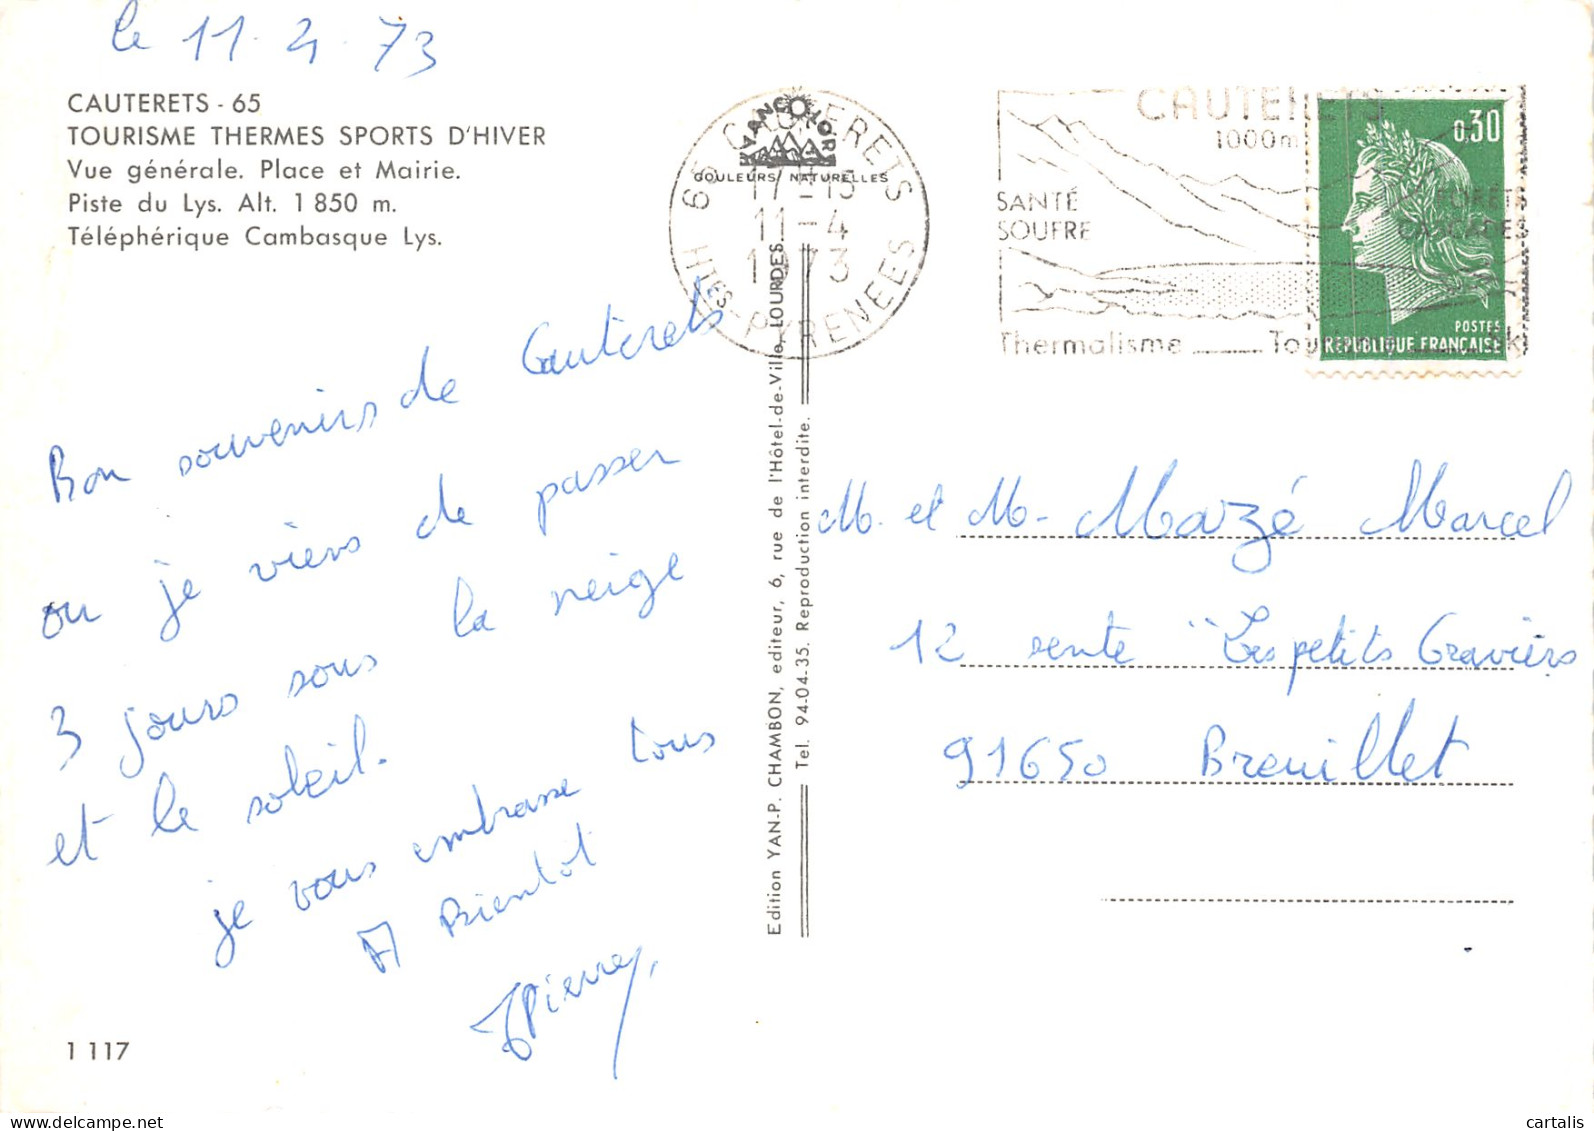 le 11.4.73
CAUTERETS - 65
TOURISME THERMES SPORTS D'HIVER
Vue générale. Place et Mairie.
Piste du Lys. Alt. 1 850 m.
Téléphérique Cambasque Lys.
Bon souvenirs de Cauterets
ou je viens de passer
3 jours sous la neige
et le soleil.
je vous embrasse tous
A Bientôt
JPierre
1 117
YANCOLOR
COULEURS NATURELLES
65 CAUTERETS
17-15
11-4
1973
HTES-PYRENEES
Edition YAN-P. CHAMBON, editeur, 6, rue de l'Hôtel-de-Ville, LOURDES
Tel. 94-04-35. Reproduction interdite.
CAUTERETS
1000m
SANTÉ
SOUFRE
FORETS
CASCADES
Thermalisme
0,30
POSTES
REPUBLIQUE FRANÇAISE
M. et M- Mazé Marcel
12 sente "Les petits Graviers
91650 Breuillet
cartalis
delcampe.net